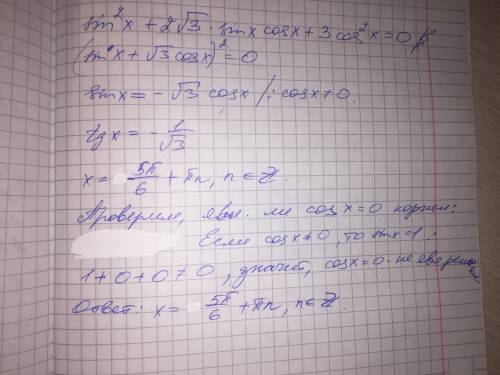 sin²x + 2√3 · sinx cosx + 3 cos²x = 0
(sin x + √3 cosx)² = 0
sinx = - √3 cosx /: cosx ≠ 0.
tgx = - 1/√3
x = 5π/6 + πn, n ∈ Z.
Проверим, явл. ли cosx = 0 корнем:
Если cosx ≠ 0, то sinx = 1 :
1 + 0 + 0 ≠ 0, значит, cosx = 0 - не
Ответ: x = 5π/6 + πn, n ∈ Z